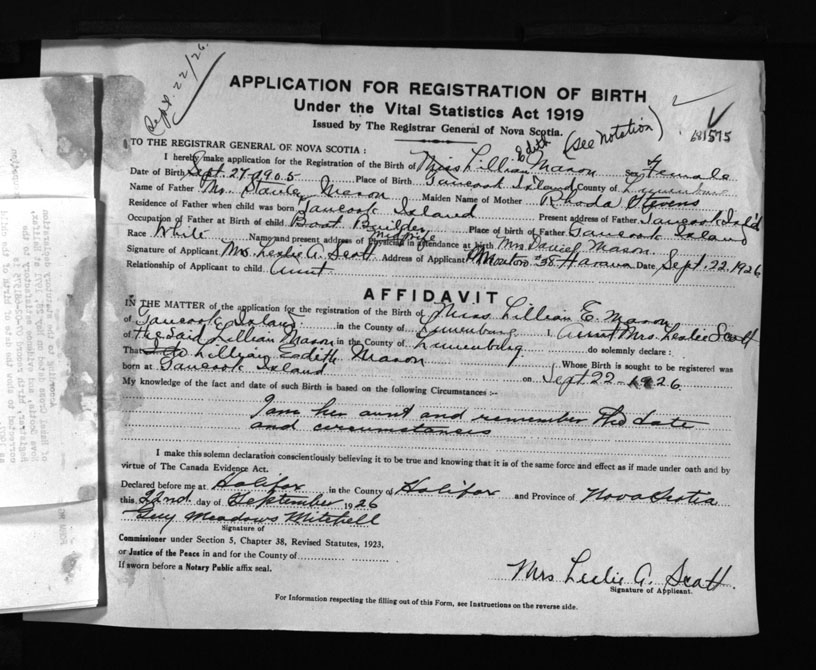 Sept. 22/26.
APPLICATION FOR REGISTRATION OF BIRTH
Under the Vital Statistics Act 1919
Issued by The Registrar General of Nova Scotia.
(See notation)
TO THE REGISTRAR GENERAL OF NOVA SCOTIA :
Edith
I hereby make application for the Registration of the Birth of Miss Lillian Mason Sex Female
Date of Birth Sept. 27-1905 Place of Birth Tancook Island County of Lunenburg
Name of Father Mr. Mason Maiden Name of Mother Rhoda Stevens
Residence of Father when child was born Tancook Island Present address of Father Tancook Isl'd
Occupation of Father at Birth of child Boat Builder Place of birth of Father Tancook Island
midwife
Race White Name and present address of physician in attendance at birth Mrs Daniel Mason.
Signature of Applicant Mrs. Leslie A. Scott Address of Applicant Date Sept. 22. 1926
Relationship of Applicant to child Aunt
AFFIDAVIT
IN THE MATTER of the application for the registration of the Birth of Miss Lillian E. Mason
of Tancook Island in the County of Lunenburg I, Aunt Mrs. Leslie Scott
of the said Lillian Mason in the County of Lunenburg do solemnly declare :
That Lillian Eedith Mason Whose Birth is sought to be registered was
born at Tancook Island on Sept. 22-1926
My knowledge of the fact and date of such Birth is based on the following Circumstances :-
I am her aunt and remember the date
and circumstances
I make this solemn declaration conscientiously believing it to be true and knowing that it is of the same force and effect as if made under oath and by
virtue of The Canada Evidence Act.
Declared before me at Halifax in the County of Halifax and Province of Nova Scotia
this 22nd day of September 1926
Guy Meadows Mitchell
Signature of
Commissioner under Section 5, Chapter 38, Revised Statutes, 1923,
or Justice of the Peace in and for the County of
If sworn before a Notary Public affix seal.
Mrs Leslie A. Scott.
Signature of Applicant.
For Information respecting the filling out of this Form, see Instructions on the reverse side.